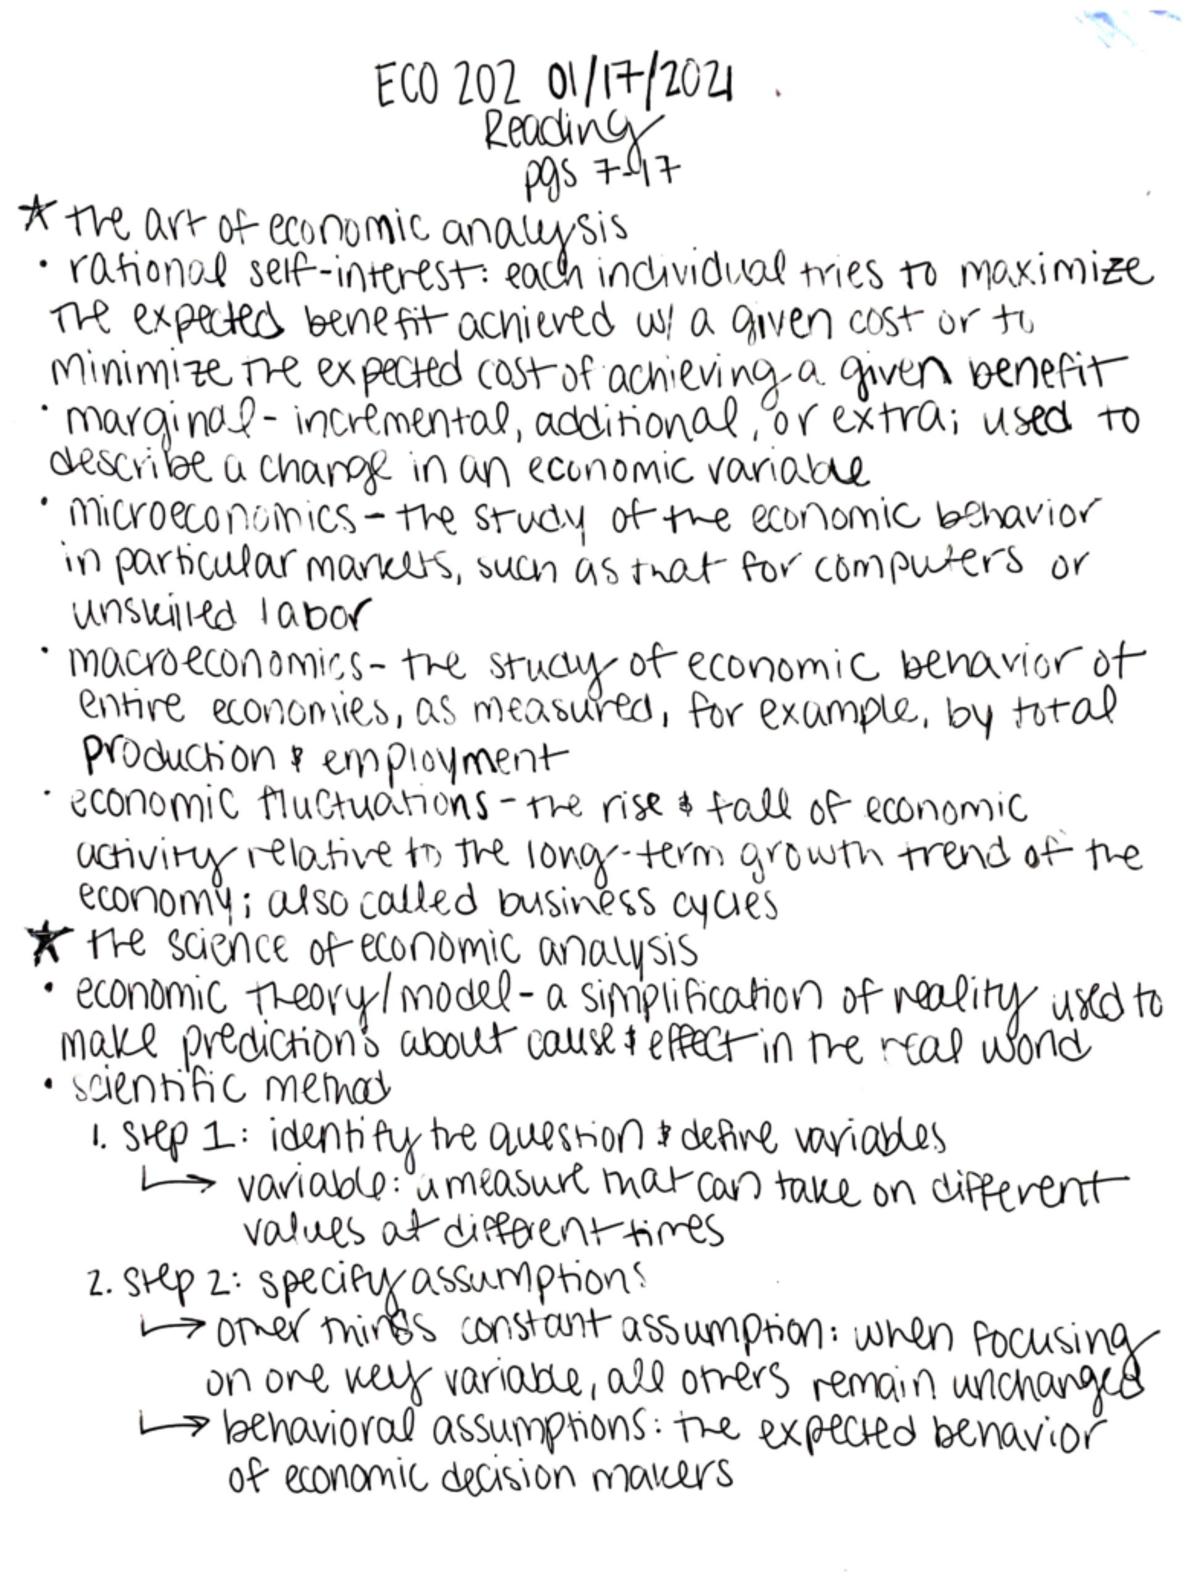 ECO 202 01/17/2021
Reading
pgs 7-17
★ the art of economic analysis
• rational self-interest: each individual tries to maximize
the expected benefit achieved w/ a given cost or to
minimize the expected cost of achieving a given benefit
• marginal - incremental, additional, or extra; used to
describe a change in an economic variable
• microeconomics - the study of the economic behavior
in particular markets, such as that for computers or
unskilled labor
• macroeconomics - the study of economic behavior of
entire economies, as measured, for example, by total
production & employment
• economic fluctuations - the rise & fall of economic
activity relative to the long-term growth trend of the
economy; also called business cycles
★ the science of economic analysis
• economic theory/model - a simplification of reality used to
make predictions about cause & effect in the real world
• scientific method
1. step 1: identify the question & define variables
↳ variable: a measure that can take on different
values at different times
2. step 2: specify assumptions
↳ other things constant assumption: when focusing
on one key variable, all others remain unchanged
↳ behavioral assumptions: the expected behavior
of economic decision makers